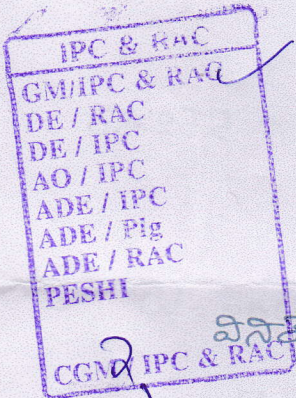 IPC & RAC
GM/IPC & RAC
DE / RAC
DE / IPC
AO / IPC
ADE / IPC
ADE / Plg
ADE / RAC
PESHI
CGM IPC & RAC